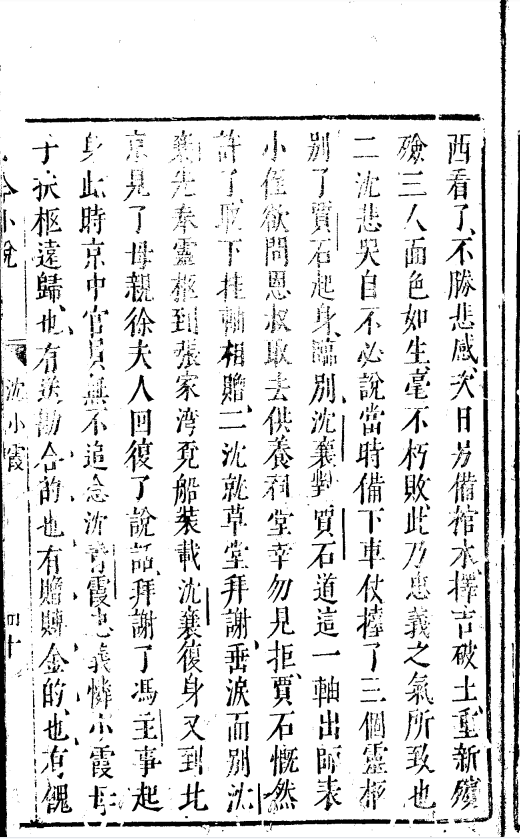 西看了不勝悲感次日另備棺木擇吉破土重新殯
殮三人面色如生毫不朽敗此乃忠義之氣所致也
二沈悲哭自不必說當時備下車仗擡了三個靈柩
別了賈石起身臨別沈襄對賈石道這一軸出師表
小侄欲問恩叔取去供養祠堂幸勿見拒賈石慨然
許了取下挂軸相贈二沈就草堂拜謝垂淚而別沈
襄先奉靈柩到張家湾覓船裝載沈襄復身又到北
京見了母親徐夫人回復了說話拜謝了馮主事起
身此時京中官員無不追念沈青霞忠義憐小霞母
子扶柩遠歸也有送勘合的也有贈賻金的也有餽
小說
沈小霞
四十